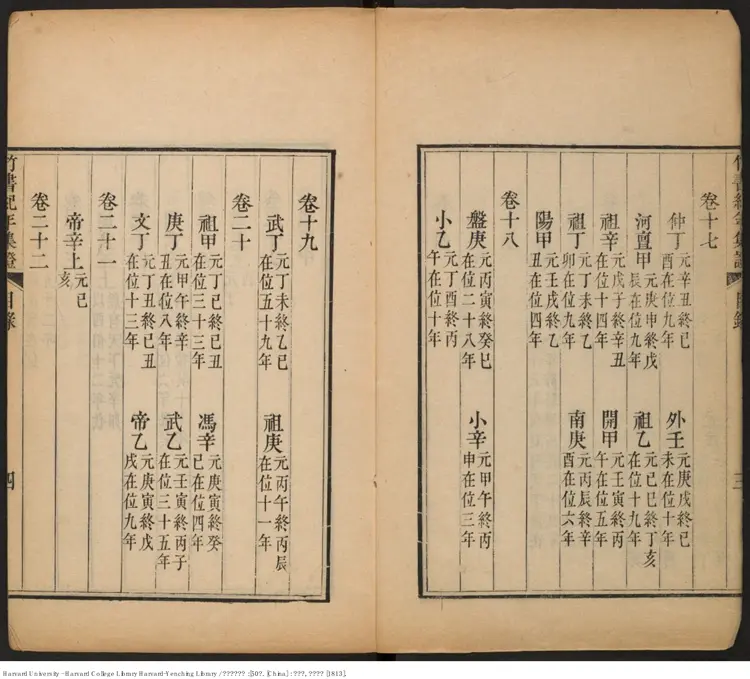 竹書紀年集證 目錄 三
卷十七
仲丁 元辛丑終己酉在位九年 外壬 元庚戌終己未在位十年
河亶甲 元庚申終戊辰在位九年 祖乙 元己巳終丁亥在位十九年
祖辛 元戊子終辛丑在位十四年 開甲 元壬寅終丙午在位五年
祖丁 元丁未終乙卯在位九年 南庚 元丙辰終辛酉在位六年
陽甲 元壬戌終乙丑在位四年
卷十八
盤庚 元丙寅終癸巳在位二十八年 小辛 元甲午終丙申在位三年
小乙 元丁酉終丙午在位十年
卷十九
武丁 元丁未終乙巳在位五十九年 祖庚 元丙午終丙辰在位十一年
卷二十
祖甲 元丁巳終己丑在位三十三年 馮辛 元庚寅終癸巳在位四年
庚丁 元甲午終辛丑在位八年 武乙 元壬寅終丙子在位三十五年
文丁 元丁丑終己丑在位十三年 帝乙 元庚寅終戊戌在位九年
卷二十一
帝辛上 元己亥
卷二十二
竹書紀年集證 目錄 四
Harvard University - Harvard College Library Harvard-Yenching Library / ?????? : [50?. [China] : ???, ???? [1813].